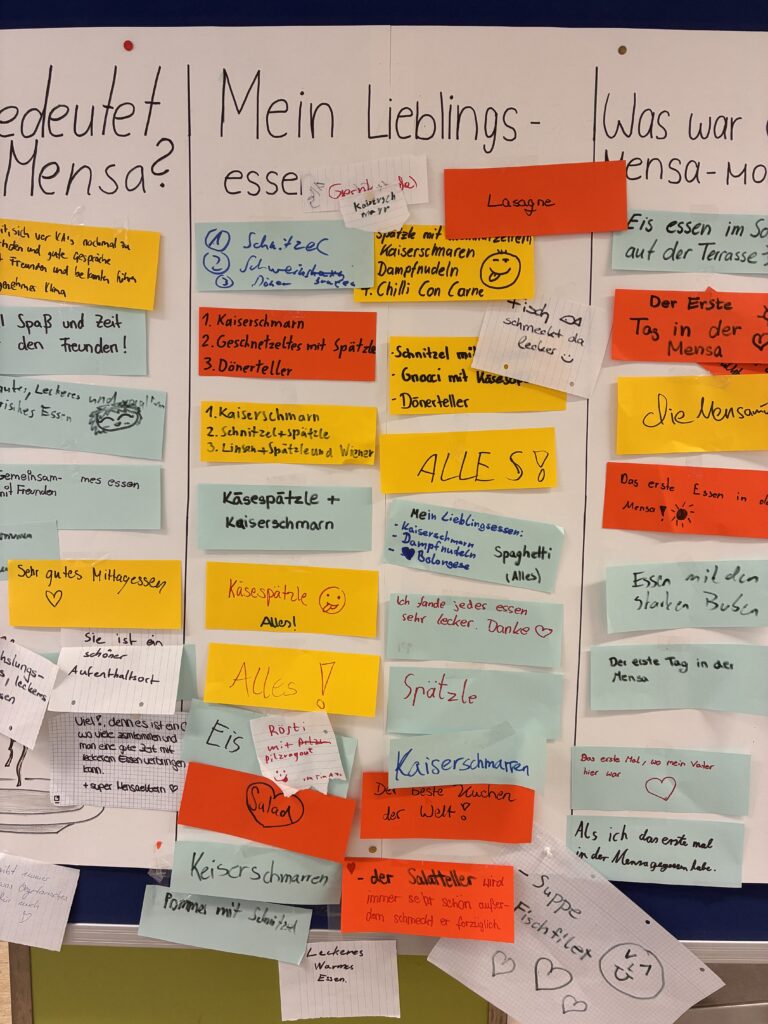 edeutet
Mensa?
nochmal zu
und gute Gespräche
Freunden und bekannten führen
genehmes Klima
Spaß und Zeit
den Freunden!
Leckeres und
risches Essen
Gemeinsam- mes essen
mit Freunden
Sehr gutes Mittagessen
Sie ist ein
schöner
Aufenthaltsort
hslungs-
s, leckeres
sen
Viel?, denn es ist ein
wo viele zammkommen und
man eine gute Zeit mit
leckerem Essen verbringen
kann.
+ super Mensaeltern
Mein Lieblings-
essen
Kaisersch
marr
Lasagne
1 Schnitzel
2
3
Spätzle mit
Kaiserschmaren
Dampfnudeln
4. Chilli Con Carne
1. Kaiserschmarn
2. Geschnetzeltes mit Spätzle
3. Dönerteller
Fisch
schmeckt da
lecker
- Schnitzel mit
- Gnocci mit Käseso
- Dönerteller
1. Kaiserschmarn
2. Schnitzel+Spätzle
3. Linsen+Spätzle und Wiener
ALLES!
Käsespätzle +
Kaiserschmarn
Mein Lieblingsessen:
- Kaiserschmarn
- Dampfnudeln
- Bolongese
Spaghetti
(Alles)
Käsespätzle
Alles!
Ich fande jedes essen
sehr lecker. Danke
Alles!
Spätzle
Eis
Rösti
mit
pilzragout
Kaiserschmarren
Salad
Der beste Kuchen
der Welt!
Keiserschmarren
- der Salatteller wird
immer sehr schön außer-
dem schmeckt er forzüglich.
Pommes mit Schnitzel
- Suppe
Fischfilet
Leckeres
Warmes
Essen.
Was war
Mensa-Mo
Eis essen im So
auf der Terasse
Der Erste
Tag in der
Mensa
die Mensa
Das erste Essen in de
Mensa!
Essen mit den
starken Buben
Der erste Tag in der
Mensa
Das erste Mal, wo mein Vater
hier war
Als ich das erste mal
in der Mensa gegessen habe.